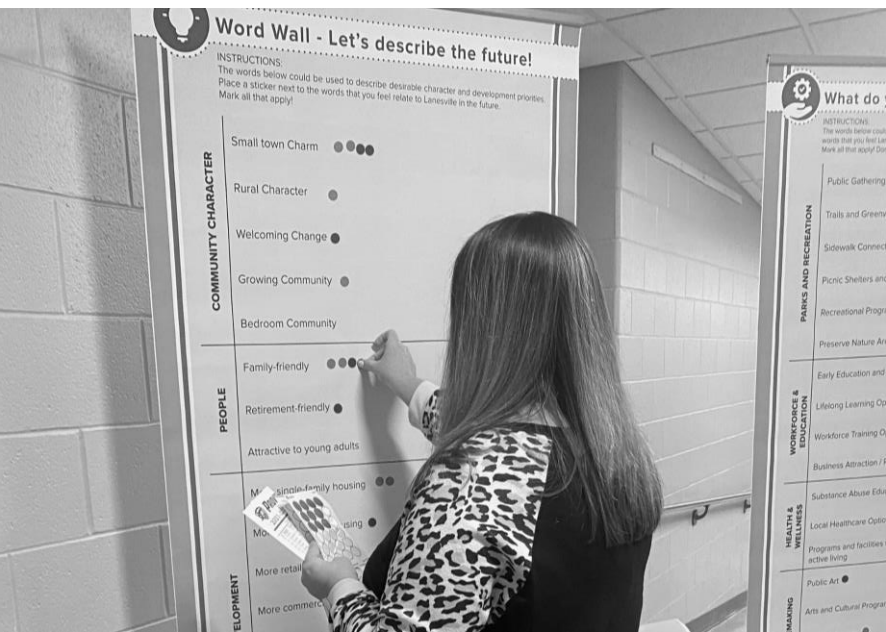 Word Wall - Let's describe the future!
INSTRUCTIONS:
The words below could be used to describe desirable character and development priorities.
Place a sticker next to the words that you feel relate to Lanesville in the future.
Mark all that apply!
COMMUNITY CHARACTER
Small town Charm
Rural Character
Welcoming Change
Growing Community
Bedroom Community
PEOPLE
Family-friendly
Retirement-friendly
Attractive to young adults
single-family housing
More retail
More commerc
What do
INSTRUCTIONS
The words below
words that you feel
Mark all that apply!
PARKS AND RECREATION
Public Gathering
Trails and Greenw
Sidewalk Connect
Picnic Shelters and
Recreational Progr
Preserve Nature Ar
WORKFORCE &
EDUCATION
Early Education and
Lifelong Learning Op
Workforce Training
Business Attraction /
HEALTH &
WELLNESS
Substance Abuse Edu
Local Healthcare Optio
Programs and facilities
active living
MAKING
Public Art
Arts and Cultural Progra